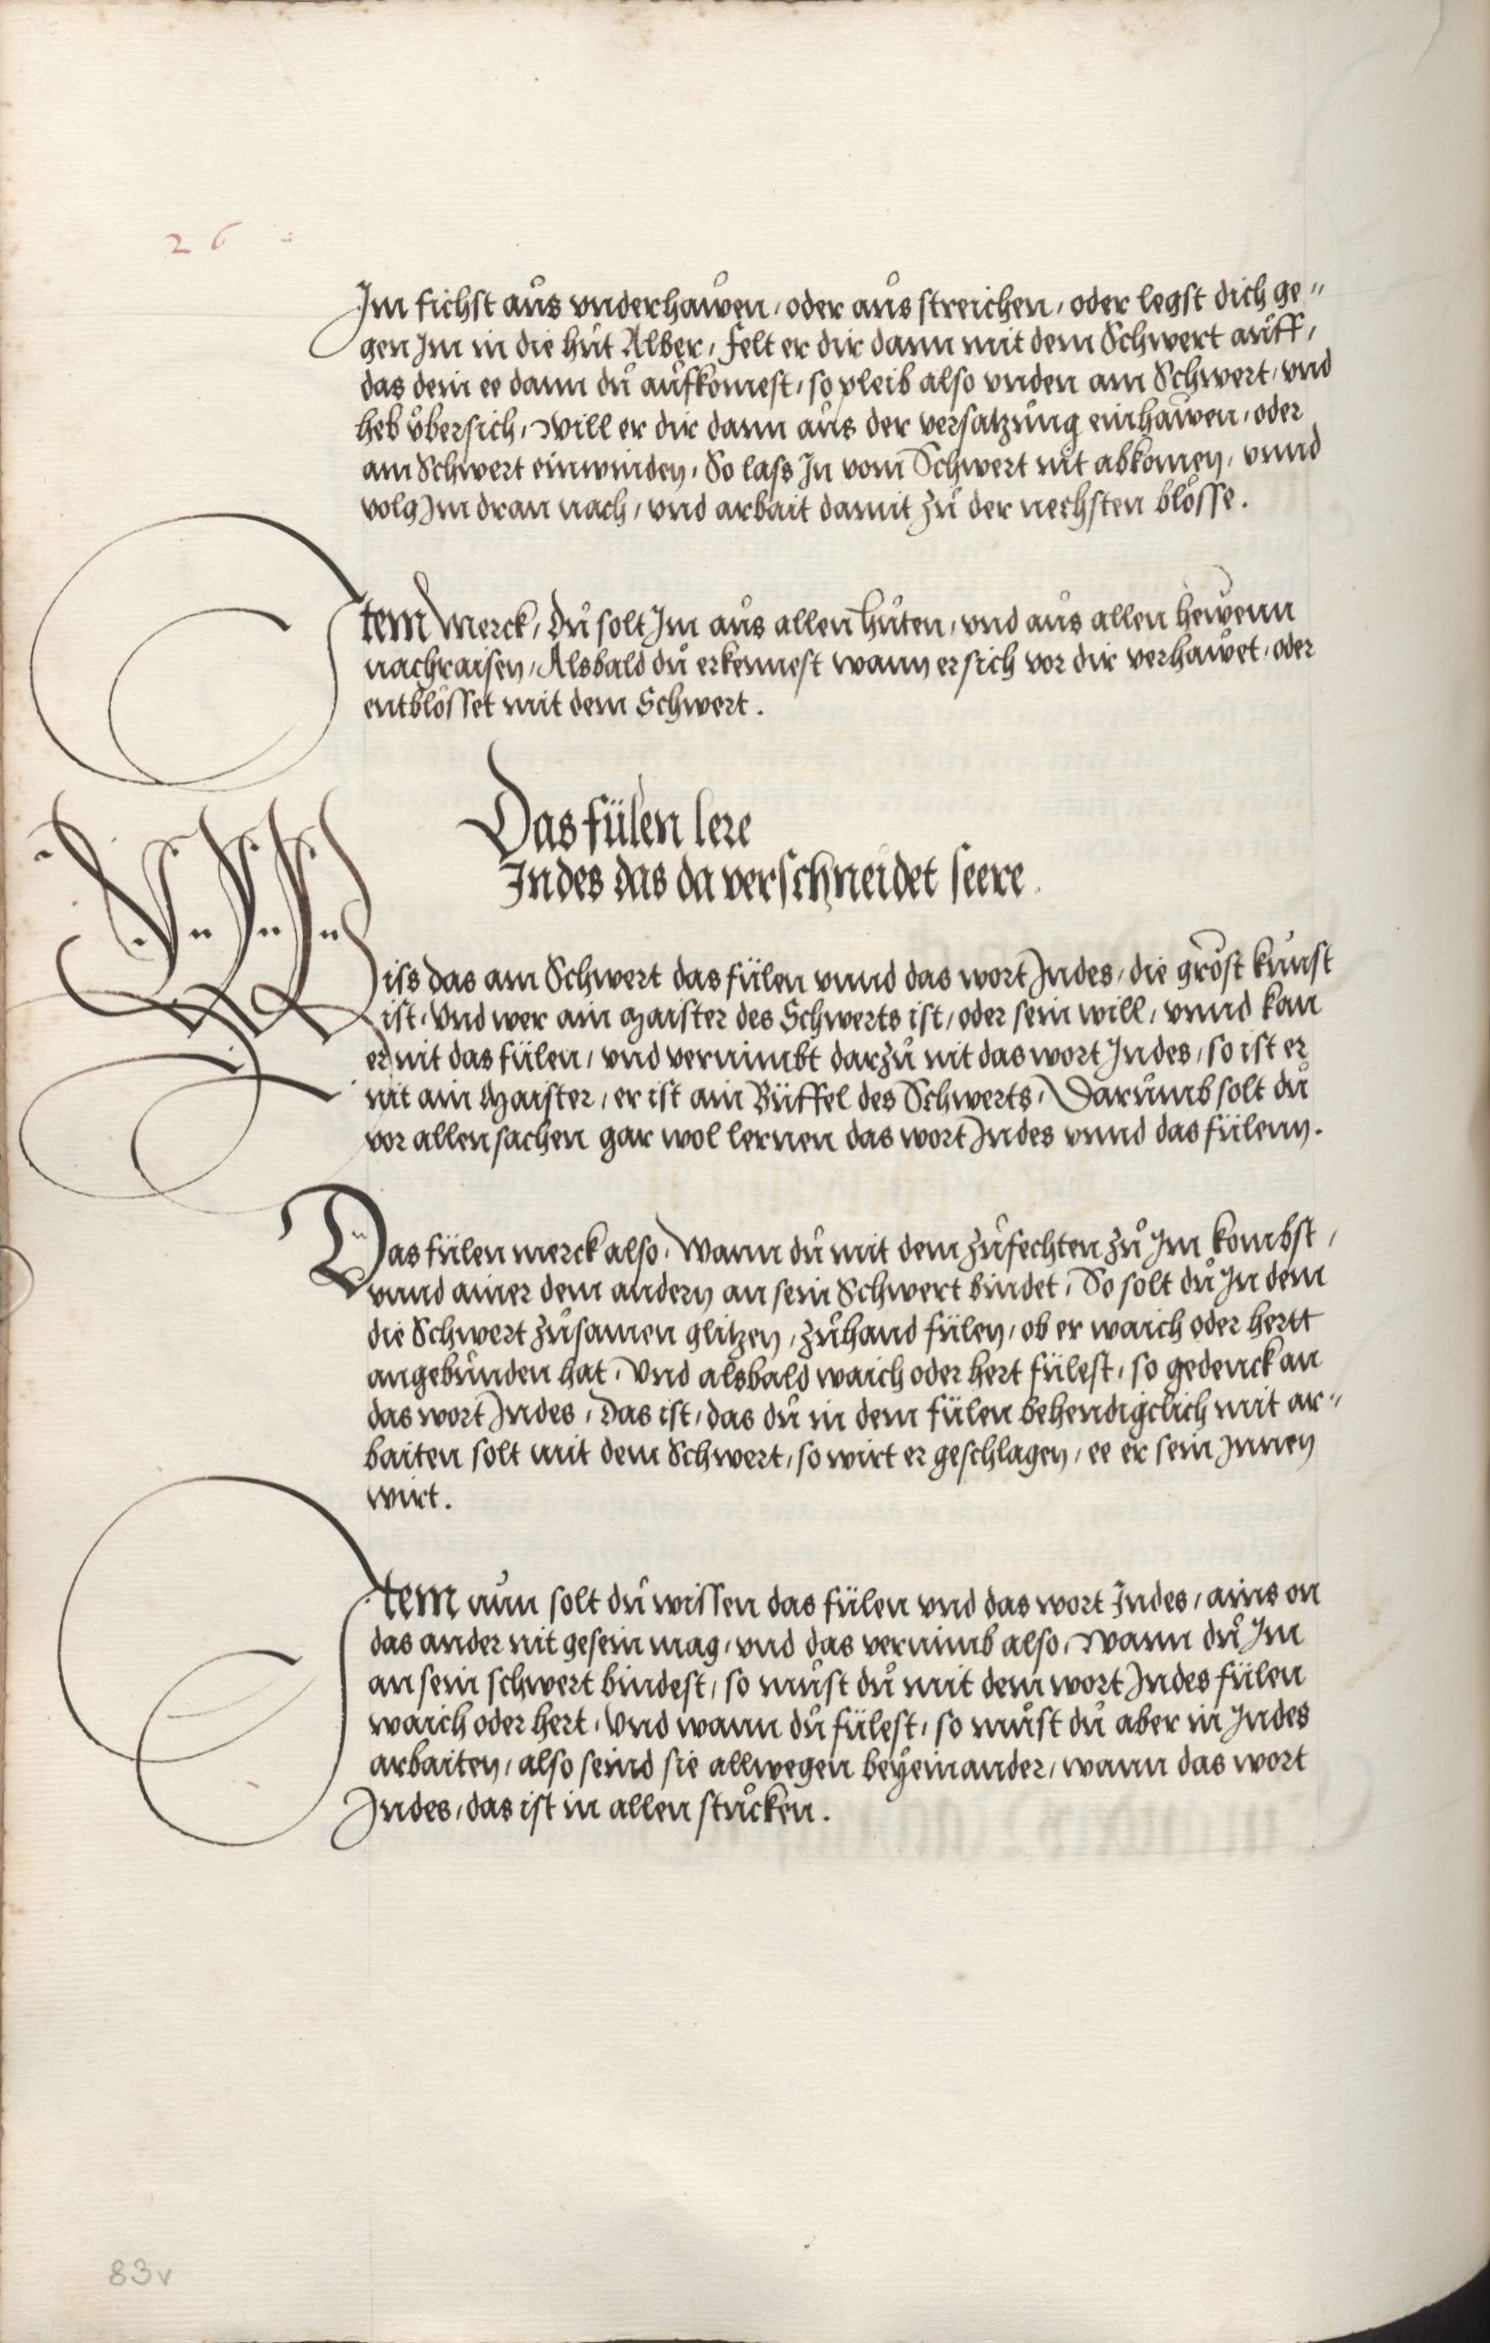 26
Im fichst aůs vnderhawen / oder aůs streichen / oder legst dich ge=
gen Im in die hůt Alber / felt er dir dann mit dem Schwert aůff /
das dein ee dann dů aůfkomest / so pleib also vnden am Schwert / vnd
heb v̊bersich / Will er dir dann aůs der versatzůng einhawen / oder
am Schwert einwinden / So lass In vom Schwert nit abkomen / vnnd
volg Im dran nach / vnd arbait damit zů der nechsten blösse .
Item Merck / Dů solt Im aůs allen hůten / vnd aůs allen hewenn
nachraisen / Alsbald dů erkennest wann er sich vor dir verhawet / oder
entblösset mit dem Schwert .
Das fülen lere
Indes das da verschneidet seere .
Wiss das am Schwert das fülen vnnd das wort Indes / die gröst kůnst
ist / Vnd wer ain Maister des Schwerts ist / oder sein will / vnnd kan
er nit das fülen / vnd vernimbt darzů nit das wort Indes / so ist er
nit ain Maister / er ist ain Büffel des Schwerts / Darůmb solt dů
vor allen sachen gar wol lernen das wort Indes vnnd das fülenn .
Das fülen merck also / Wann dů mit dem zůfechten zů Im kombst /
vnnd ainer dem andern an sein Schwert bindet / So solt dů In dem
die Schwert zůsamen glitzen / zůhand fülen / ob er waich oder hertt
angebůnden hat / Vnd alsbald waich oder hert fülest / so gedenck an
das wort Indes / Das ist / das dů in dem fülen behendigclich mit ar=
baiten solt mit dem Schwert / so wirt er geschlagen / ee er sein Innen
wirt .
Item nun solt dů wissen das fülen vnd das wort Indes / ains on
das ander nit gesein mag / vnd das vernimb also / Wann dů Im
an sein schwert bindest / so můst dů mit dem wort Indes fülen
waich oder hert / Vnd wann dů fülest / so můst dů aber in Indes
arbaiten / also seind sie allwegen beÿeinander / wann das wort
Indes / das ist in allen stůcken .
83v